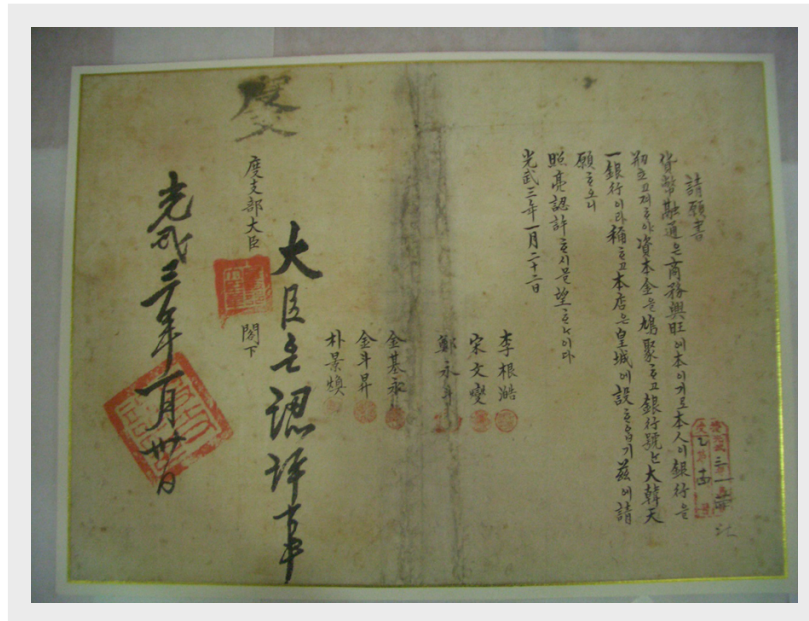 請願書
貨幣融通은商務興旺에本이기로本人이銀行을
刱ᄒᆞ고져ᄒᆞ야資本金을鳩聚ᄒᆞ고銀行號ᄂᆞᆫ大韓天
一銀行이라稱ᄒᆞ고本店은皇城에設ᄒᆞ옵기玆에請
願ᄒᆞ오니
照亮認許ᄒᆞ시믈望ᄒᆞᄂᆞ이다
光武三年一月二十二日
李根澔
宋文燮
鄭永斗
金基永
金斗昇
朴景煥
度支部大臣 閣下
大臣은認許事
光武三年一月卅日